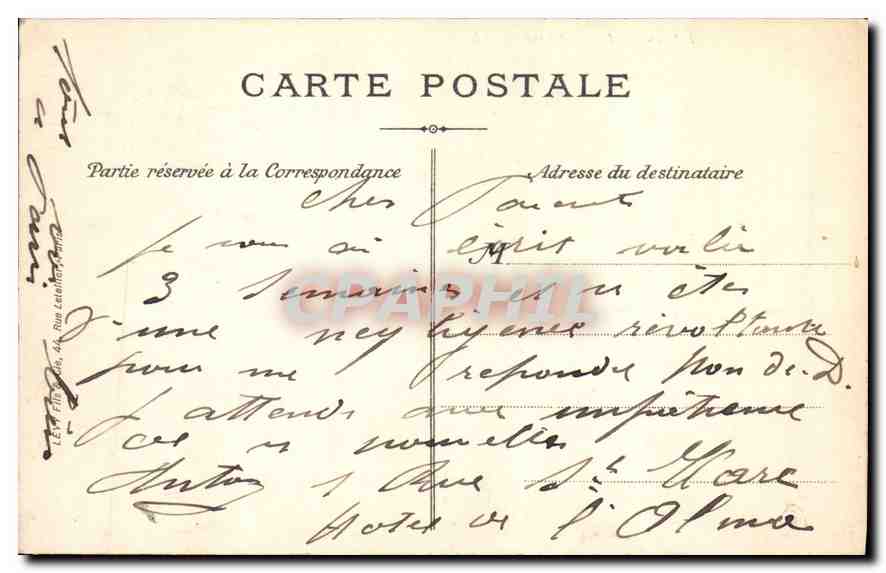 CARTE POSTALE
Partie réservée à la Correspondance
Adresse du destinataire
Chers Parents
Je vous ai écrit voila
M
3 Semaines et v êtes
d'une negligence révoltante
pour me repondre Non de. D.
J attends avec impatience
de v nouvelles
Anton 1 Rue St Marc
Hotel de l'Alma
LÉVY Fils & Cie, 44, Rue Letellier, Paris
à Paris
CPAPHIL